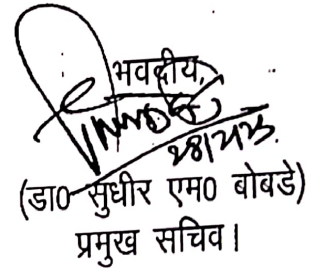 भवदीय,
(डा० सुधीर एम० बोबडे)
प्रमुख सचिव।